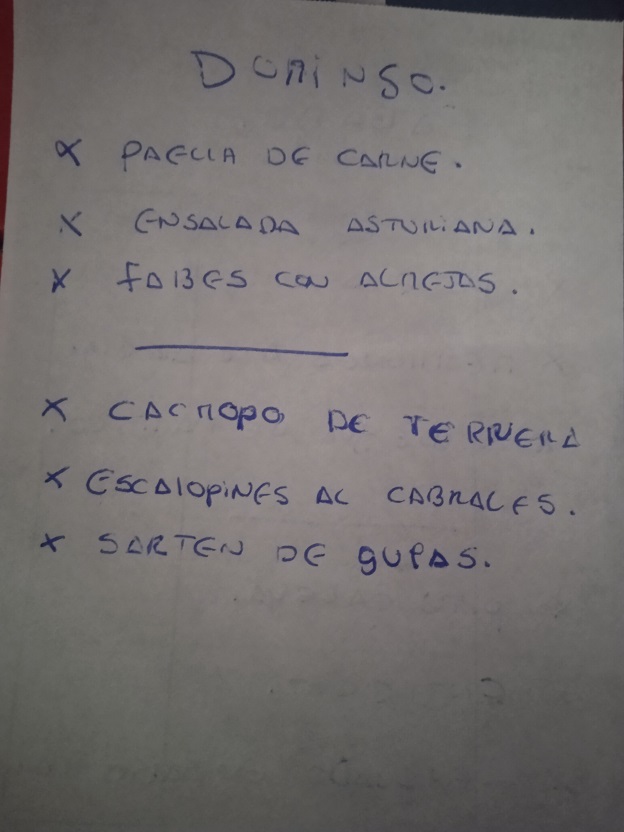 DOMINGO.
x PAELLA DE CARNE.
x ENSALADA ASTURIANA.
x FABES CON ALMEJAS.
x CACHOPO DE TERNERA
x ESCALOPINES AL CABRALES.
x SARTEN DE GULAS.